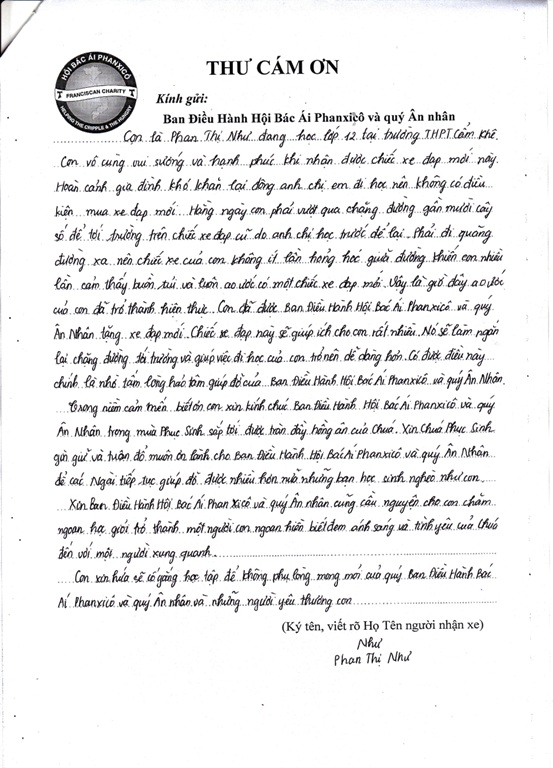 HỘI BÁC ÁI PHANXICÔ
FRANCISCAN CHARITY
HELPING THE CRIPPLE & THE HUNGRY
THƯ CÁM ƠN
Kính gửi:
Ban Điều Hành Hội Bác Ái Phanxicô và quý Ân nhân
Con là Phan Thị Như đang học lớp 12 tại trường THPT Cẩm Khê.
Con vô cùng vui sướng và hạnh phúc khi nhận được chiếc xe đạp mới này.
Hoàn cảnh gia đình khó khăn lại đông anh chị em đi học nên không có điều
kiện mua xe đạp mới. Hàng ngày con phải vượt qua chặng đường gần mười cây
số để tới trường trên chiếc xe đạp cũ do anh chị học trước để lại. Phải đi quãng
đường xa nên chiếc xe của con không ít lần hỏng hóc giữa đường khiến con nhiều
lần cảm thấy buồn tủi và luôn ao ước có một chiếc xe đạp mới. Vậy là giờ đây ao ước
của con đã trở thành hiện thực. Con đã được Ban Điều Hành Hội Bác Ái Phanxicô và quý
Ân Nhân tặng xe đạp mới. Chiếc xe đạp này sẽ giúp ích cho con rất nhiều. Nó sẽ làm ngắn
lại chặng đường tới trường và giúp việc đi học của con trở nên dễ dàng hơn. Có được điều này
chính là nhờ tấm lòng hảo tâm giúp đỡ của Ban Điều Hành Hội Bác Ái Phanxicô và quý Ân Nhân.
Trong niềm cảm mến biết ơn con xin kính chúc Ban Điều Hành Hội Bác Ái Phanxicô và quý
Ân Nhân trong mùa Phục Sinh sắp tới được tràn đầy hồng ân của Chúa. Xin Chúa Phục Sinh
gìn giữ và tuôn đổ muôn ơn lành cho Ban Điều Hành Hội Bác Ái Phanxicô và quý Ân Nhân
để các Ngài tiếp tục giúp đỡ được nhiều hơn nữa những bạn học sinh nghèo như con.
Xin Ban Điều Hành Hội Bác Ái Phan Xicô và quý Ân nhân cũng cầu nguyện cho con chăm
ngoan học giỏi trở thành một người con ngoan hiền biết đem ánh sáng và tình yêu của Chúa
đến với mọi người xung quanh.
Con xin hứa sẽ cố gắng học tập để không phụ lòng mong mỏi của quý Ban Điều Hành Bác
Ái Phanxicô và quý Ân nhân và những người yêu thương con
(Ký tên, viết rõ Họ Tên người nhận xe)
Như
Phan Thị Như